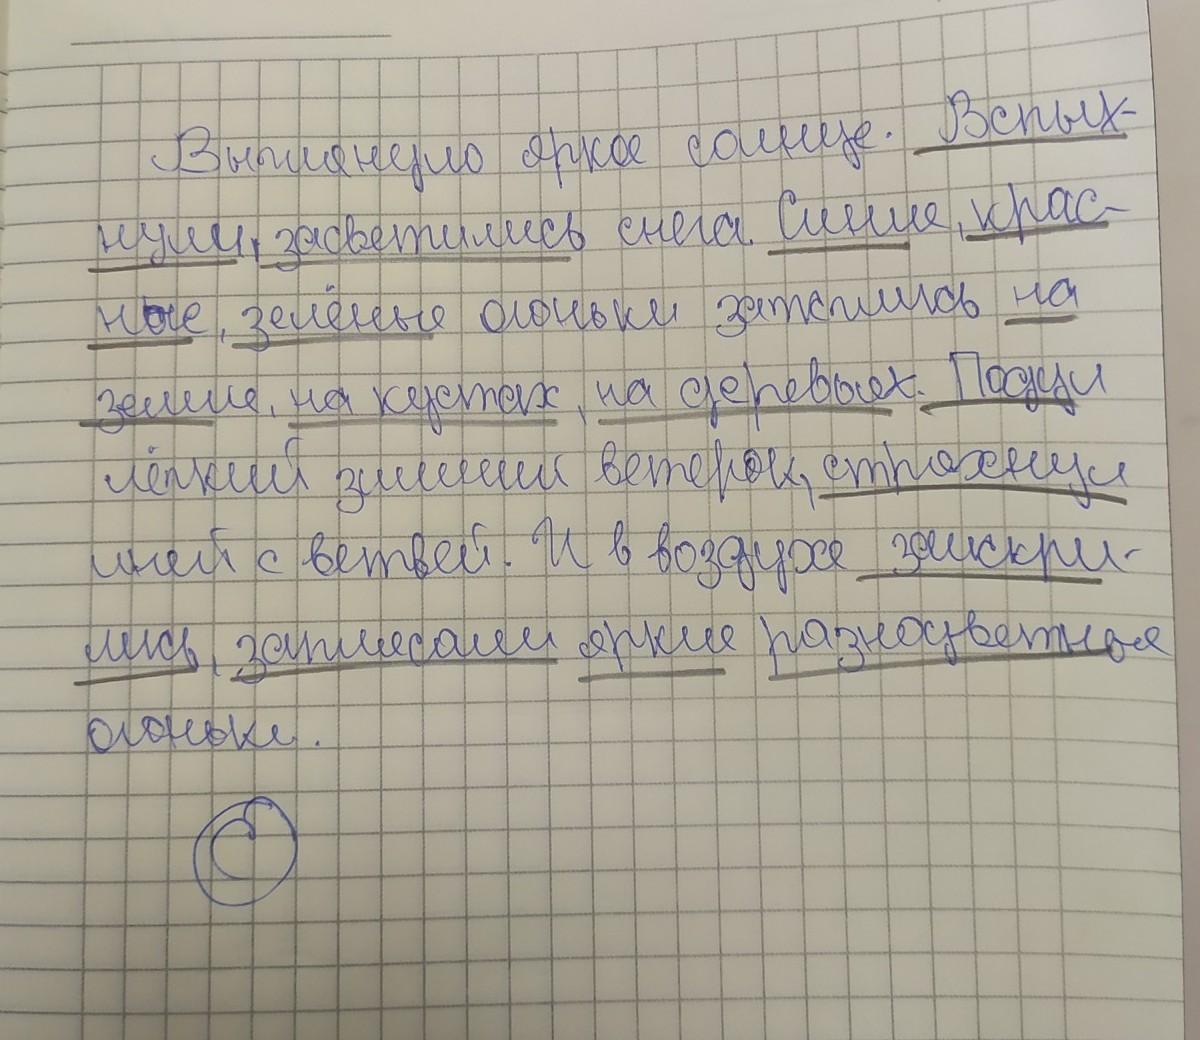 Выглянуло яркое солнце. Вспых-
нули, засветились снега. Синие, крас-
ные, зелёные огоньки затеплились на
земле, на кустах, на деревьях. Подул
лёгкий зимний ветерок, стряхнул
иней с ветвей. И в воздухе заискри-
лись, заплясали яркие разноцветные
огоньки.